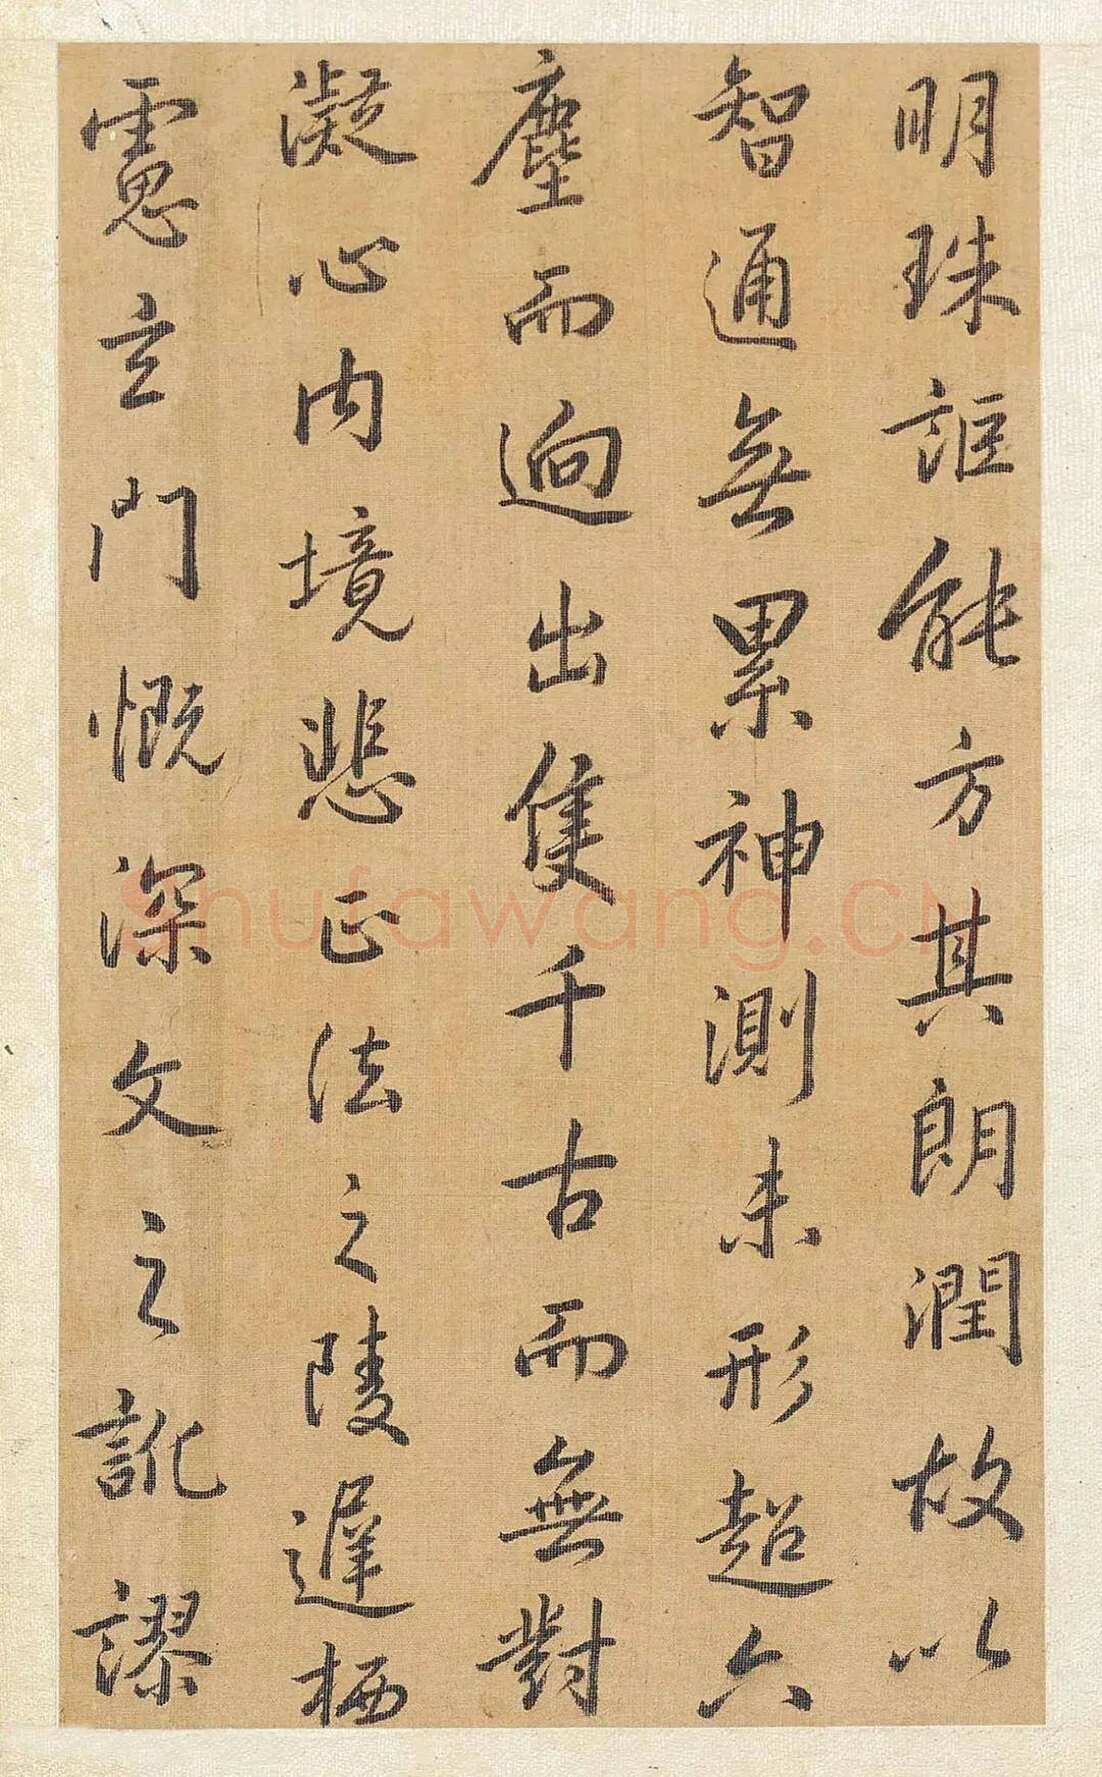 明珠詎能方其朗潤故以
智通無累神測未形超六
塵而迥出隻千古而無對
凝心內境悲正法之陵遲栖
慮玄門慨深文之訛謬
shufawang.CN